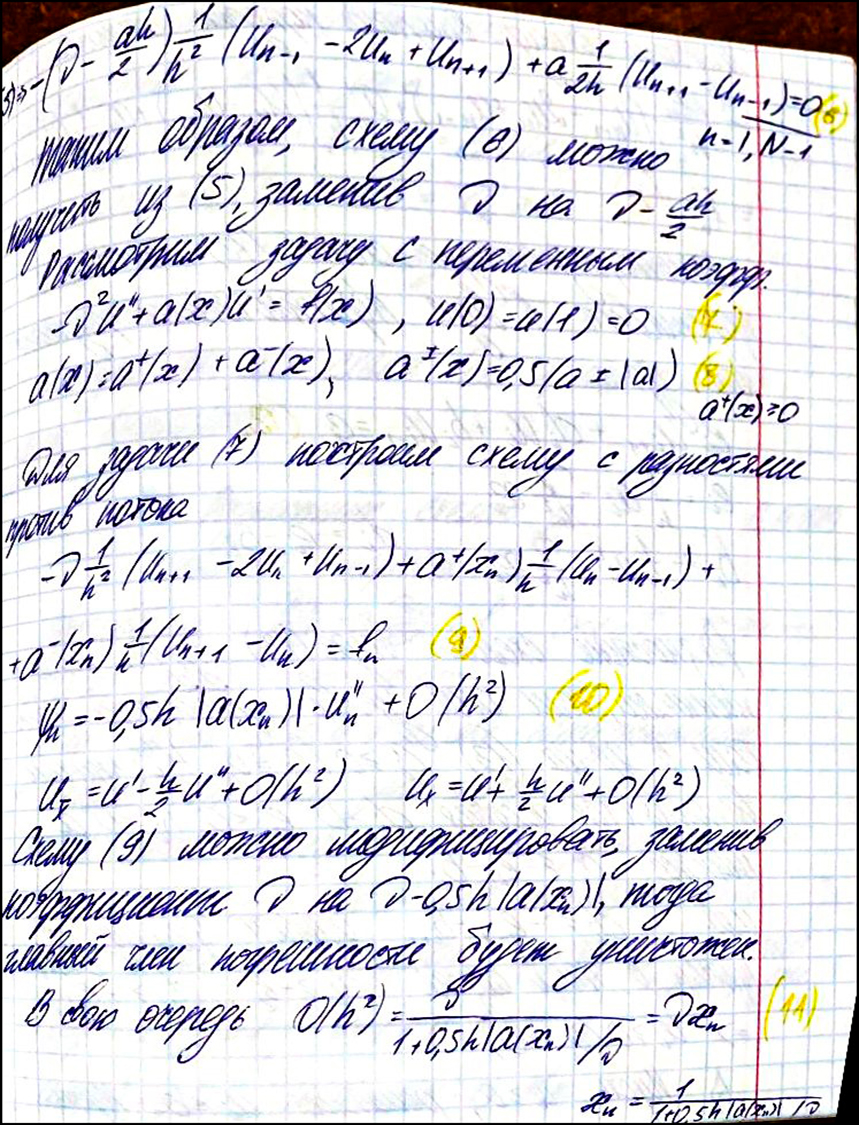 (5)⇒ -(ν - ah/2) 1/h² (u_{n-1} - 2u_n + u_{n+1}) + a 1/2h (u_{n+1} - u_{n-1}) = 0 (6)
n = 1, N-1
Таким образом, схему (6) можно
получить из (5), заменив ν на ν - ah/2
Рассмотрим задачу с переменным коэфф.
-ν²u'' + a(x)u' = f(x) , u(0) = u(1) = 0 (7)
a(x) = a⁺(x) + a⁻(x), a^±(x) = 0,5(a ± |a|) (8)
a⁺(x) ≥ 0
Для задачи (7) построим схему с разностями
против потока
-ν 1/h² (u_{n+1} - 2u_n + u_{n-1}) + a⁺(x_n) 1/h (u_n - u_{n-1}) +
+ a⁻(x_n) 1/h (u_{n+1} - u_n) = f_n (9)
ψ_n = -0,5h |a(x_n)| · u''_n + O(h²) (10)
u_x̄ = u' - h/2 u'' + O(h²) u_x = u' + h/2 u'' + O(h²)
Схему (9) можно модифицировать, заменив
коэффициент ν на ν - 0,5h|a(x_n)|, тогда
главный член погрешности будет уничтожен.
В свою очередь O(h²) = ν / (1 + 0,5h|a(x_n)|/ν) = νæ_n (11)
æ_n = 1 / (1 + 0,5h|a(x_n)|/ν)